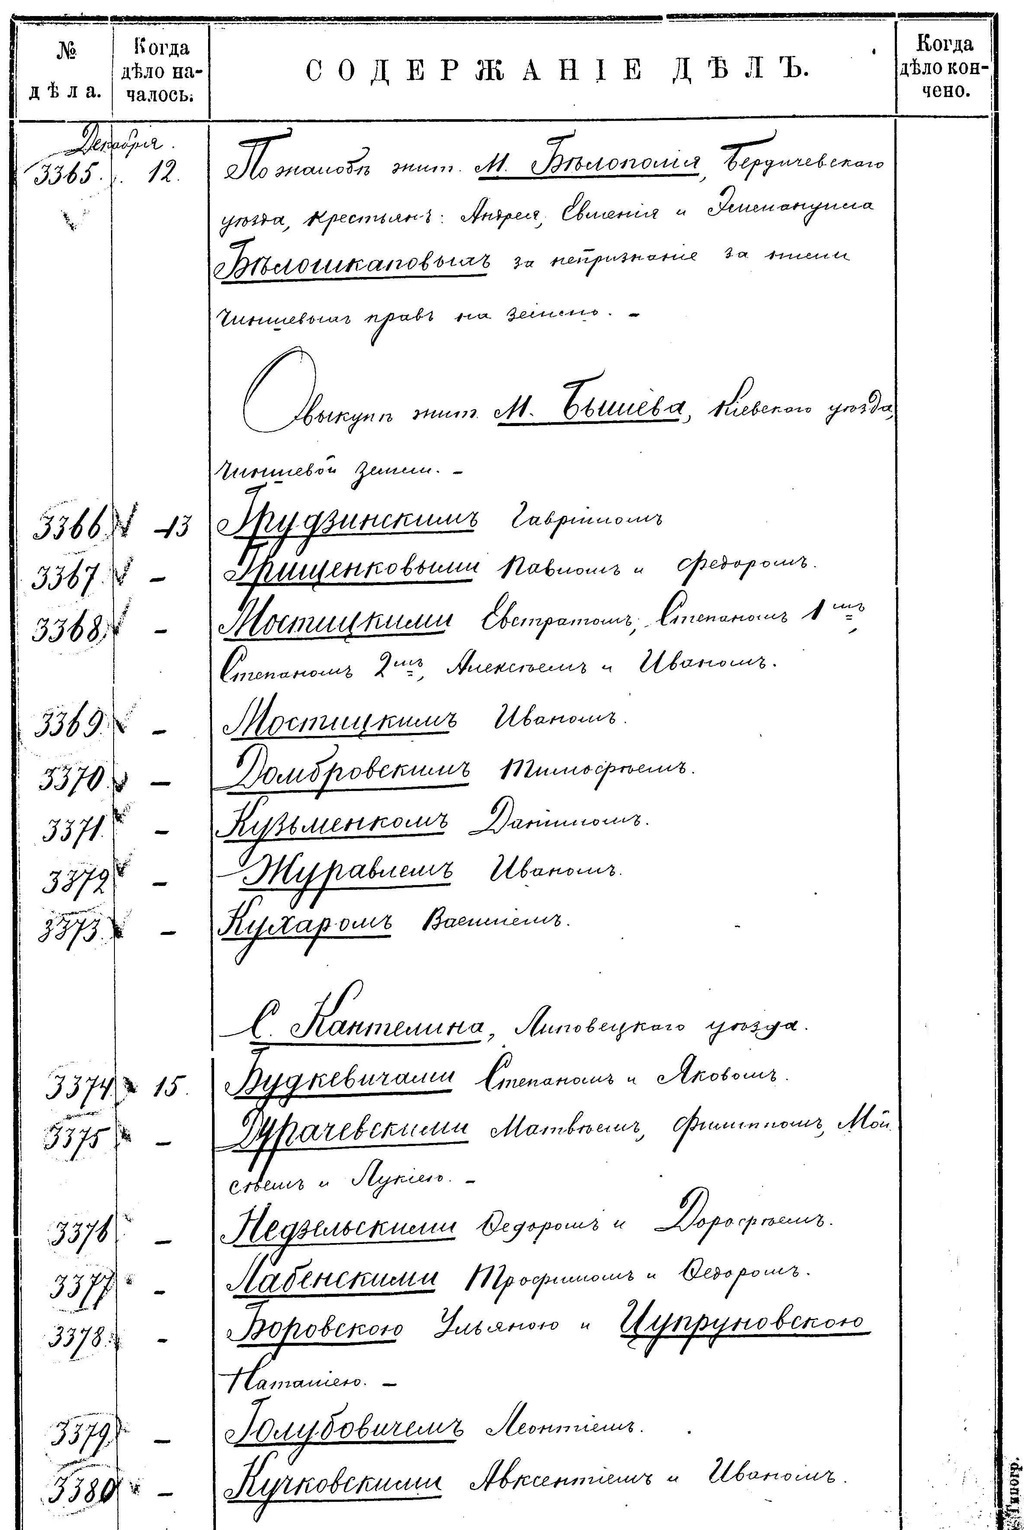 № дѣла. Когда дѣло началось. СОДЕРЖАНІЕ ДѢЛЪ. Когда дѣло кончено.
Декабрія.
3365. 12. По жалобѣ жит. М. Бѣлополія, Бердичевскаго
уѣзда, крестьянъ: Андрея, Евменія и Эммануила
Бѣлошкаповыхъ за непризнаніе за ними
чиншевыхъ правъ на землю. –
О выкупѣ жит. М. Бышева, Кіевскаго уѣзда,
чиншевой земли. –
3366 -13 Грудзинскимъ Гавріиломъ
3367. – Грищенковыми Павломъ и Федоромъ.
3368 – Мостицкими Евстратомъ, Степаномъ 1мъ,
Степаномъ 2мъ, Алексѣемъ и Иваномъ.
3369. – Мостицкимъ Иваномъ.
3370. – Домбровскимъ Тимофѣемъ.
3371. – Кузьменкомъ Даніиломъ.
3372 – Журавлемъ Иваномъ.
3373. – Кухаромъ Василіемъ.
С. Кантелина, Липовецкаго уѣзда.
3374 15. Будкевичами Степаномъ и Яковомъ.
3375 – Дурачевскими Матвѣемъ, Филиппомъ, Мой
сѣемъ и Лукіею. –
3376 – Недзельскими Ѳедоромъ и Дорофѣемъ.
3377 – Лабенскими Трофимомъ и Ѳедоромъ.
3378. – Боровскою Ульяною и Цупруновскою
Наталіею. –
3379 – Голубовичемъ Леонтіемъ.
3380 – Кучковскими Авксентіемъ и Иваномъ.
Типогр.